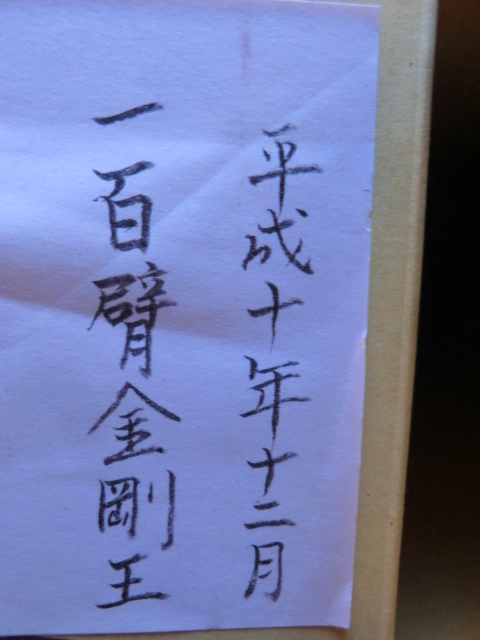 平成十年十二月
一百臂金剛王